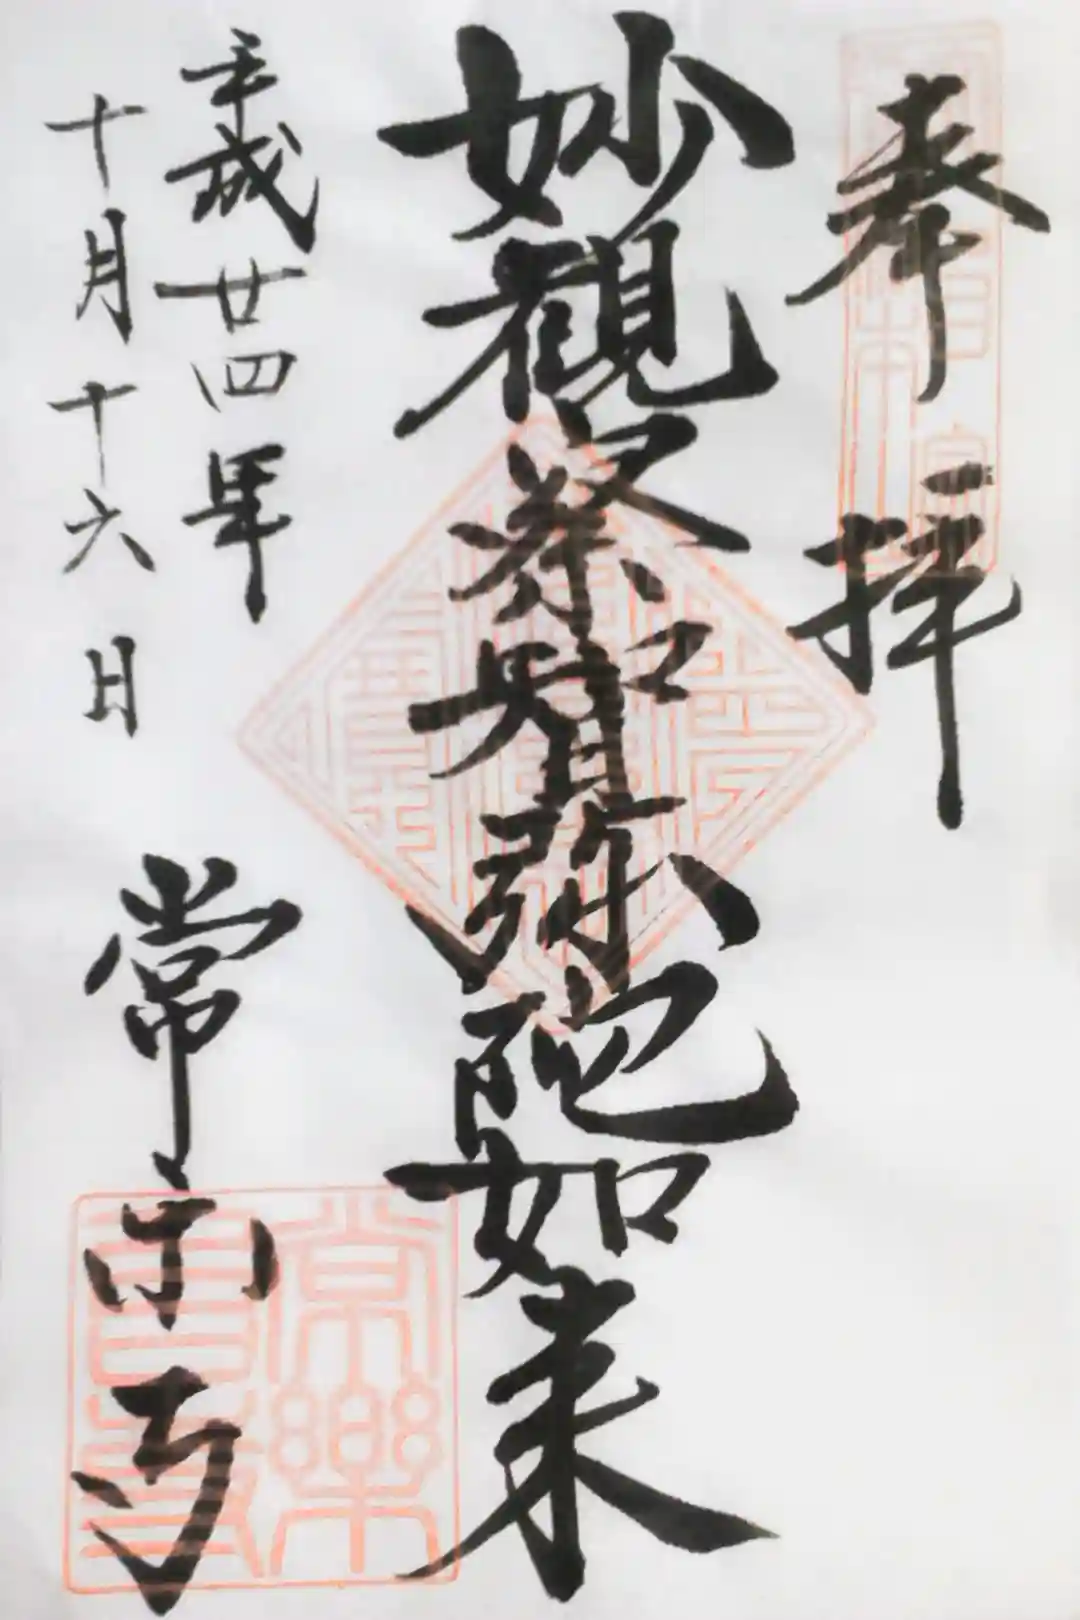 奉拝
妙観察智弥陀如来
平成廿四年
十月十六日
常楽寺